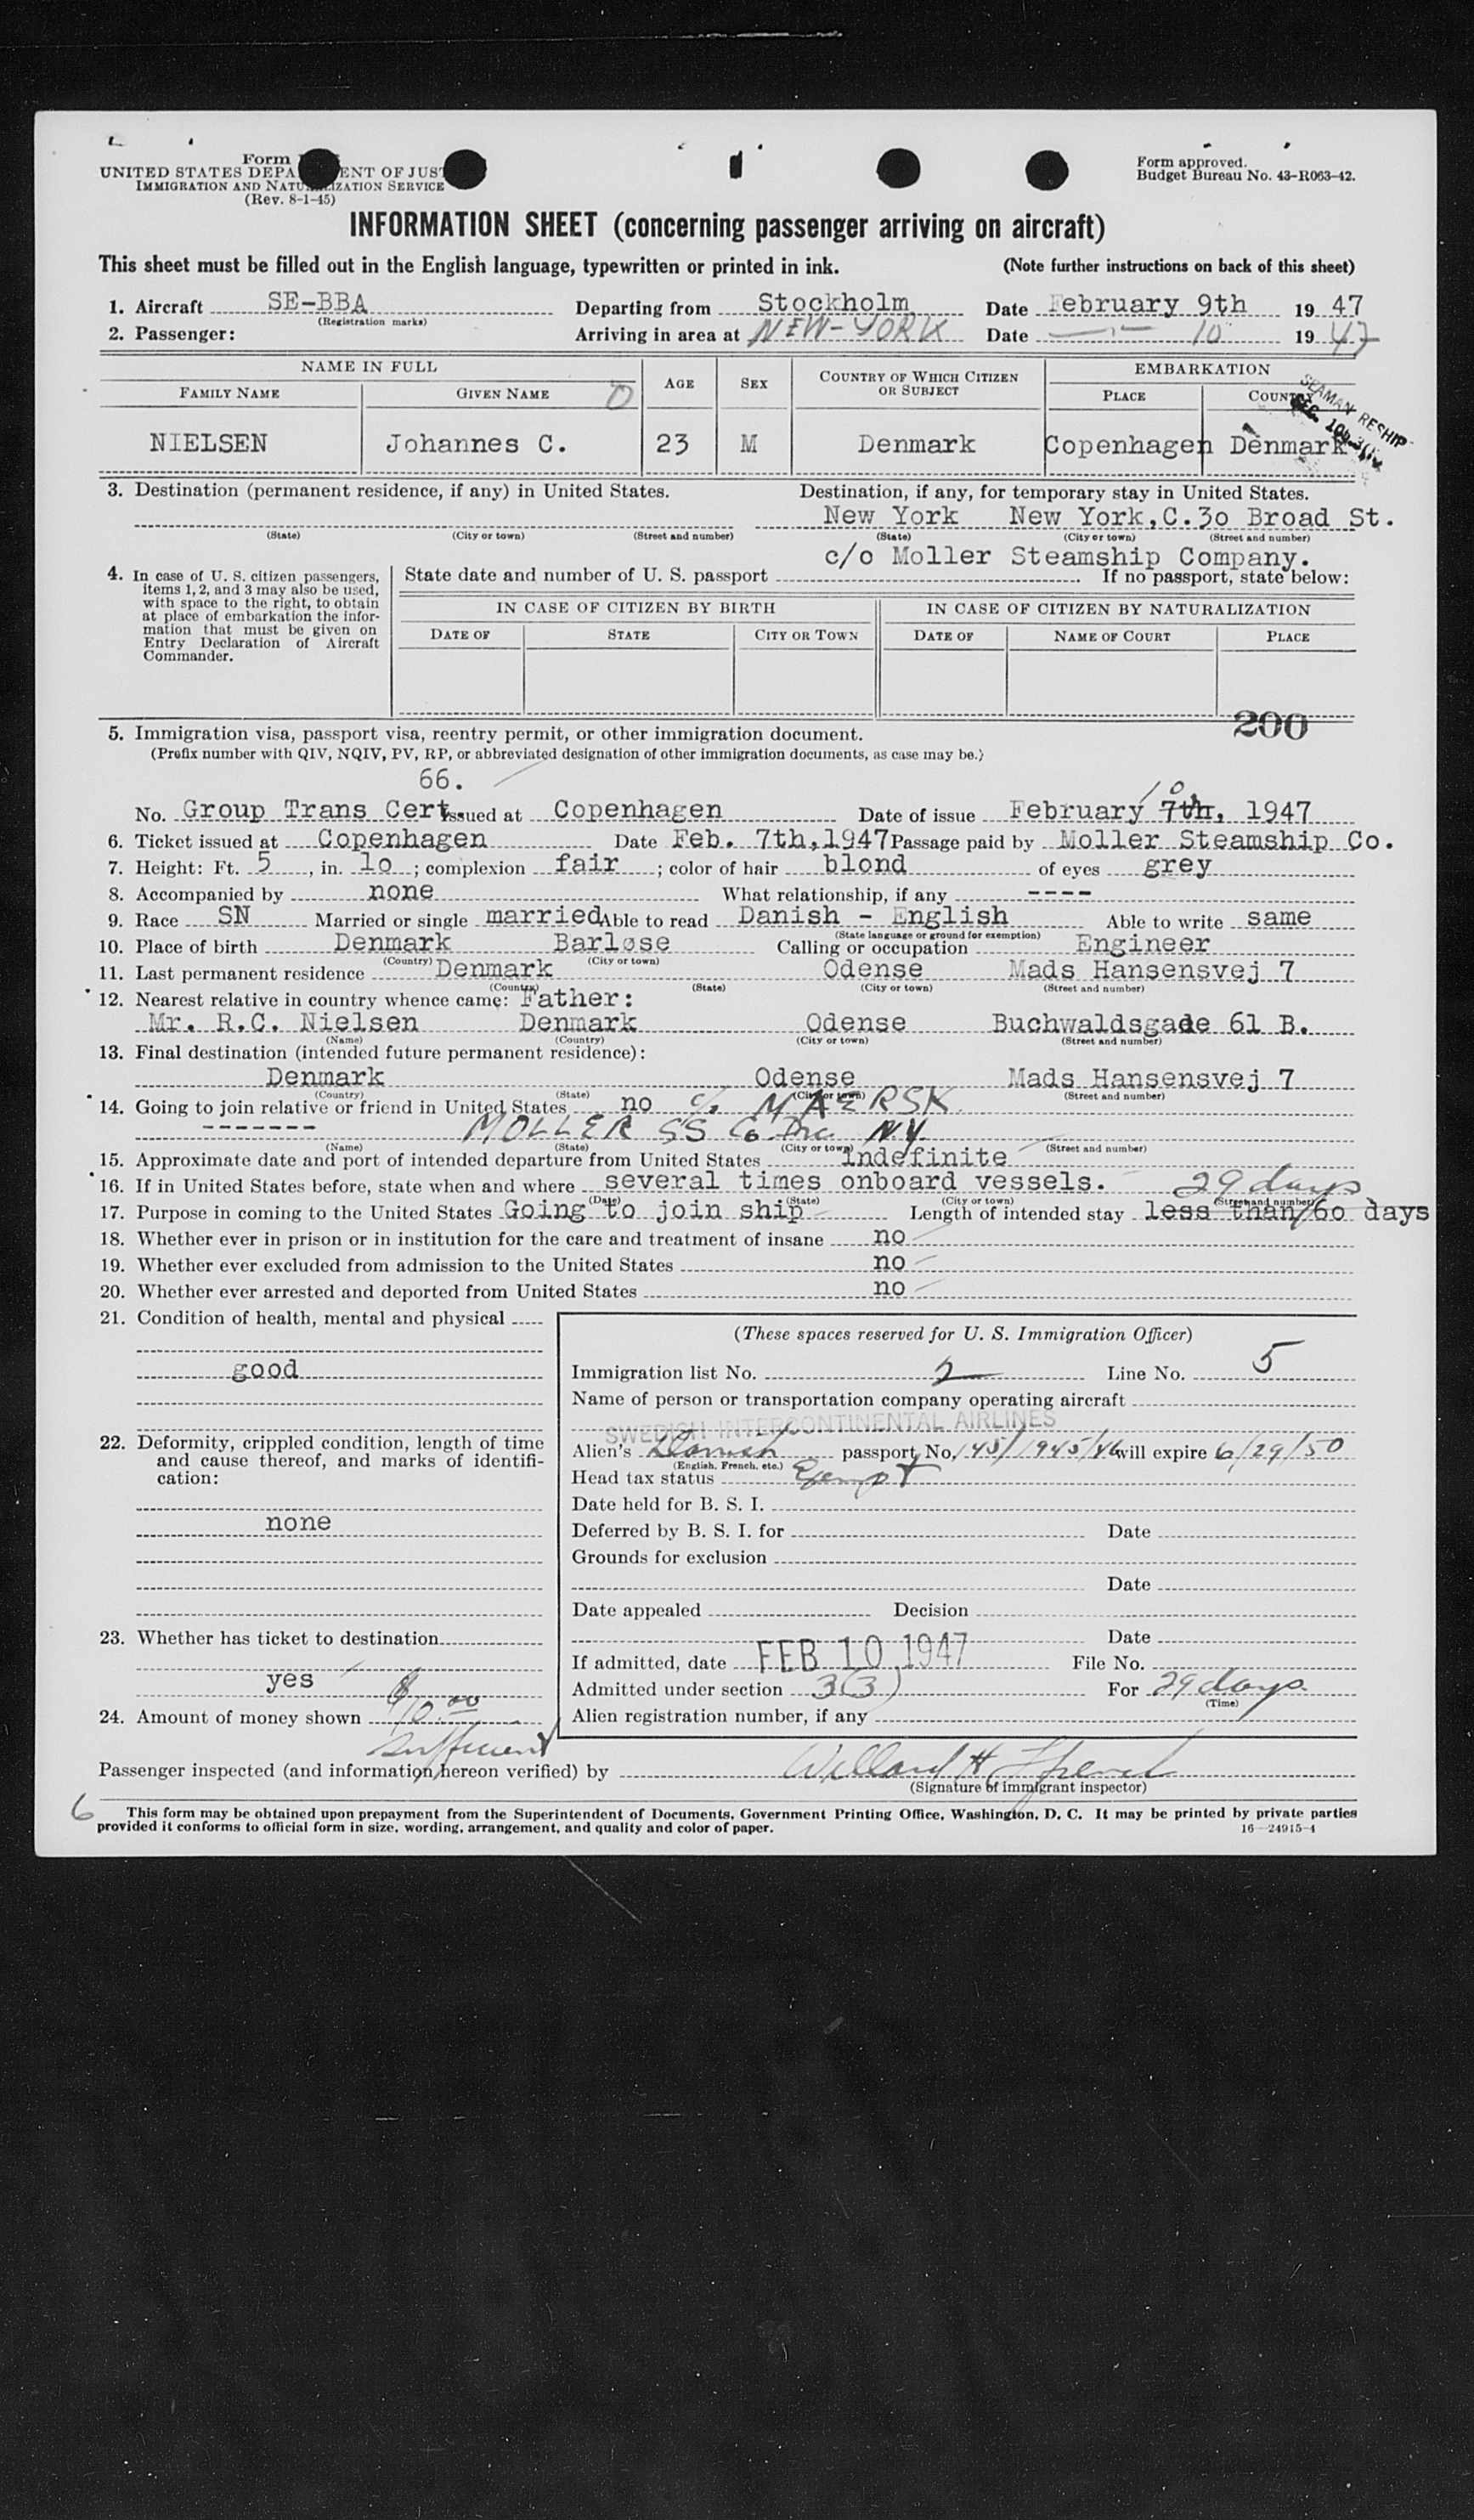 Form
UNITED STATES DEPA ENT OF JUS
IMMIGRATION AND NATU IZATION SERVICE
(Rev. 8-1-45)
Form approved.
Budget Bureau No. 43-R063-42.
INFORMATION SHEET (concerning passenger arriving on aircraft)
This sheet must be filled out in the English language, typewritten or printed in ink. (Note further instructions on back of this sheet)
1. Aircraft SE-BBA Departing from Stockholm Date February 9th 19 47
(Registration marks)
2. Passenger: Arriving in area at NEW-YORK Date —"— 10 19 47
NAME IN FULL AGE SEX COUNTRY OF WHICH CITIZEN OR SUBJECT EMBARKATION
FAMILY NAME GIVEN NAME PLACE COUNTRY
SEAMAN RESHIP
NIELSEN Johannes C. 23 M Denmark Copenhagen Denmark
3. Destination (permanent residence, if any) in United States. Destination, if any, for temporary stay in United States.
New York New York,C.3o Broad St.
(State) (City or town) (Street and number) (State) (City or town) (Street and number)
c/o Moller Steamship Company.
4. In case of U. S. citizen passengers, items 1, 2, and 3 may also be used, with space to the right, to obtain at place of embarkation the information that must be given on Entry Declaration of Aircraft Commander.
State date and number of U. S. passport If no passport, state below:
IN CASE OF CITIZEN BY BIRTH IN CASE OF CITIZEN BY NATURALIZATION
DATE OF STATE CITY OR TOWN DATE OF NAME OF COURT PLACE
200
5. Immigration visa, passport visa, reentry permit, or other immigration document.
(Prefix number with QIV, NQIV, PV, RP, or abbreviated designation of other immigration documents, as case may be.)
66.
10
No. Group Trans Cert. Issued at Copenhagen Date of issue February 7th, 1947
6. Ticket issued at Copenhagen Date Feb. 7th,1947 Passage paid by Moller Steamship Co.
7. Height: Ft. 5, in. lo; complexion fair; color of hair blond of eyes grey
8. Accompanied by none What relationship, if any ----
9. Race SN Married or single married Able to read Danish - English Able to write same
(State language or ground for exemption)
10. Place of birth Denmark Barløse Calling or occupation Engineer
(Country) (City or town)
11. Last permanent residence Denmark Odense Mads Hansensvej 7
(Country) (State) (City or town) (Street and number)
12. Nearest relative in country whence came: Father:
Mr. R.C. Nielsen Denmark Odense Buchwaldsgade 61 B.
(Name) (Country) (City or town) (Street and number)
13. Final destination (intended future permanent residence):
Denmark Odense Mads Hansensvej 7
(Country) (State) (City or town) (Street and number)
14. Going to join relative or friend in United States no c/o MAERSK
------- MOLLER SS Co Inc. N.Y.
(Name) (State) (City or town) (Street and number)
15. Approximate date and port of intended departure from United States Indefinite
16. If in United States before, state when and where several times onboard vessels. 29 days
(Date) (State) (City or town) (Street and number)
17. Purpose in coming to the United States Going to join ship Length of intended stay less than 6o days
18. Whether ever in prison or in institution for the care and treatment of insane no
19. Whether ever excluded from admission to the United States no
20. Whether ever arrested and deported from United States no
21. Condition of health, mental and physical
good
(These spaces reserved for U. S. Immigration Officer)
Immigration list No. 2 Line No. 5
Name of person or transportation company operating aircraft
SWEDISH INTERCONTINENTAL AIRLINES
22. Deformity, crippled condition, length of time and cause thereof, and marks of identification:
none
Alien's Danish passport No. 145/1945/46 will expire 6/29/50
(English, French, etc.)
Head tax status Exempt
Date held for B. S. I.
Deferred by B. S. I. for Date
Grounds for exclusion
Date
Date appealed Decision
23. Whether has ticket to destination
yes
Date
If admitted, date FEB 10 1947 File No.
Admitted under section 3(3) For 29 days
(Time)
24. Amount of money shown $10.00
sufficient
Alien registration number, if any
Passenger inspected (and information hereon verified) by Willard H.
(Signature of immigrant inspector)
6
This form may be obtained upon prepayment from the Superintendent of Documents, Government Printing Office, Washington, D. C. It may be printed by private parties
provided it conforms to official form in size, wording, arrangement, and quality and color of paper.
16—24915-1